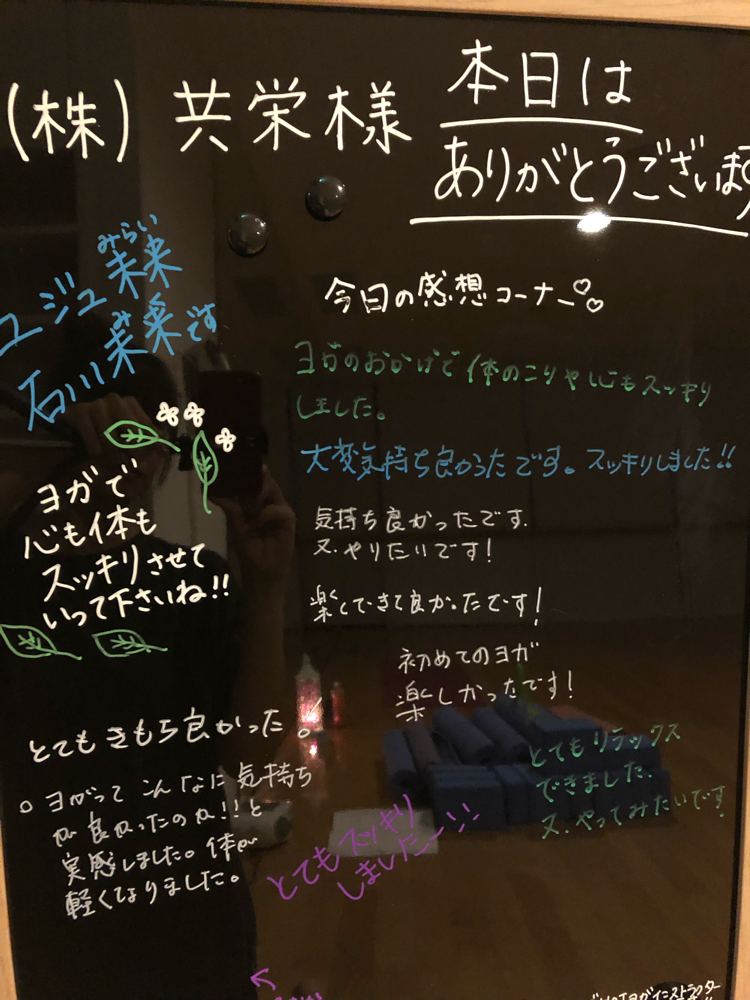 (株)共栄様
本日は
ありがとうございます
みらい
ユジュ 茉来
み な
石川 茉菜です
ヨガで
心も体も
スッキリさせて
いって下さいね!!
今日の感想コーナー♡♡
ヨガのおかげで体のこりや心もスッキリ
しました。
大変気持ち良かったです。スッキリしました!!
気持ち良かったです.
又、やりたいです!
楽しくできて良かったです!
初めてのヨガ
楽しかったです!
とてもリラックス
できました.
又、やってみたいです
とてもきもち良かった!
○ ヨガってこんなに気持ち
が良かったのか!!と
実感しました。体が
軽くなりました。
とてもスッキリ
しましたー!!
ヨガインストラクター